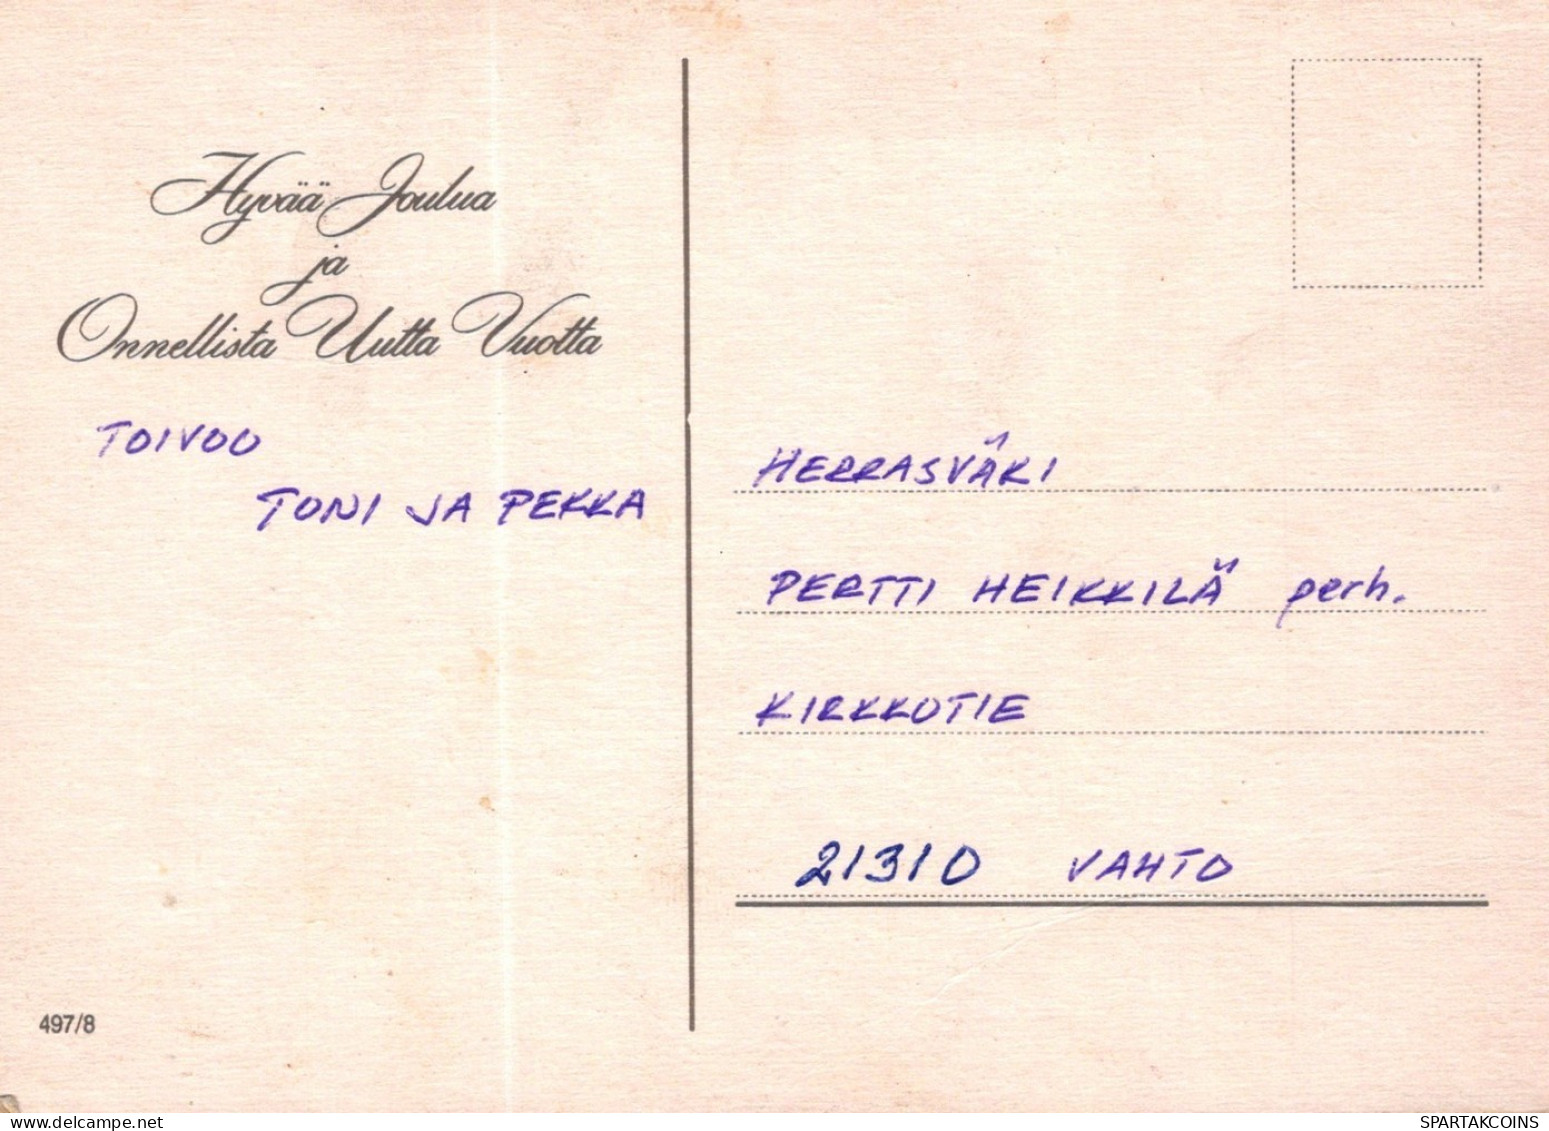 Hyvää Joulua
ja
Onnellista Uutta Vuotta
TOIVOO
TONI JA PEKKA
HERRASVÄKI
PERTTI HEIKKILÄ perh.
KIRKKOTIE
21310 VAHTO
497/8
www.delcampe.net
SPARTAKCOINS